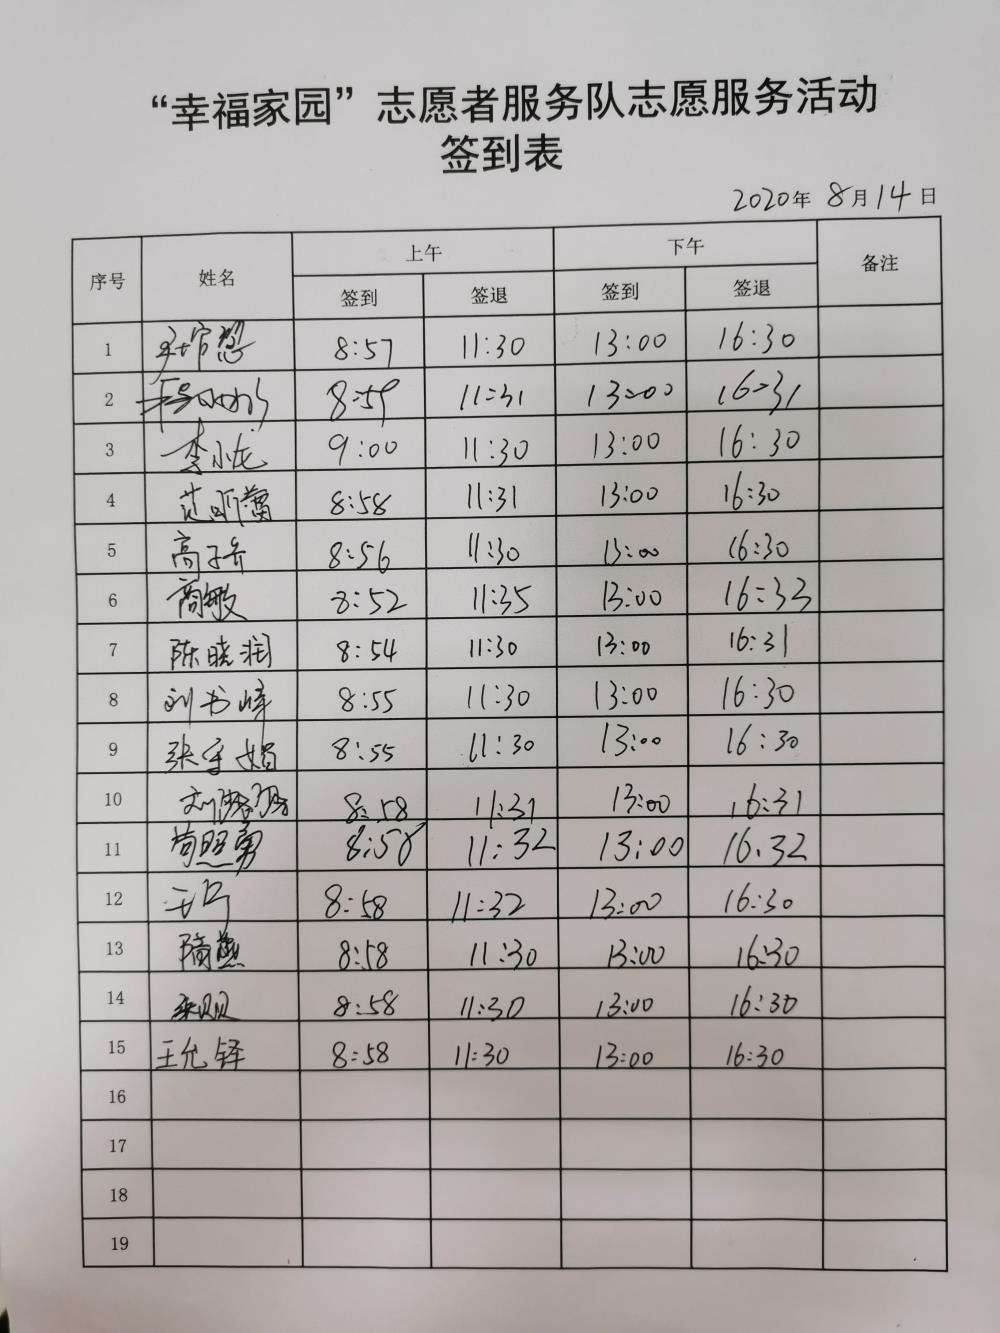 “幸福家园”志愿者服务队志愿服务活动
签到表
2020年 8月14日
序号 姓名 上午 下午 备注
签到 签退 签到 签退
1 8:57 11:30 13:00 16:30
2 8:59 11:31 13:00 16:31
3 李小龙 9:00 11:30 13:00 16:30
4 范明蕾 8:58 11:31 13:00 16:30
5 高子乔 8:56 11:30 13:00 16:30
6 商敏 8:52 11:35 13:00 16:33
7 陈晓润 8:54 11:30 13:00 16:31
8 刘书峰 8:55 11:30 13:00 16:30
9 张 娟 8:55 11:30 13:00 16:30
10 刘 8:58 11:31 13:00 16:31
11 苟照勇 8:58 11:32 13:00 16.32
12 8:58 11:32 13:00 16:30
13 8:58 11:30 13:00 16:30
14 8:58 11:30 13:00 16:30
15 王允铎 8:58 11:30 13:00 16:30
16
17
18
19